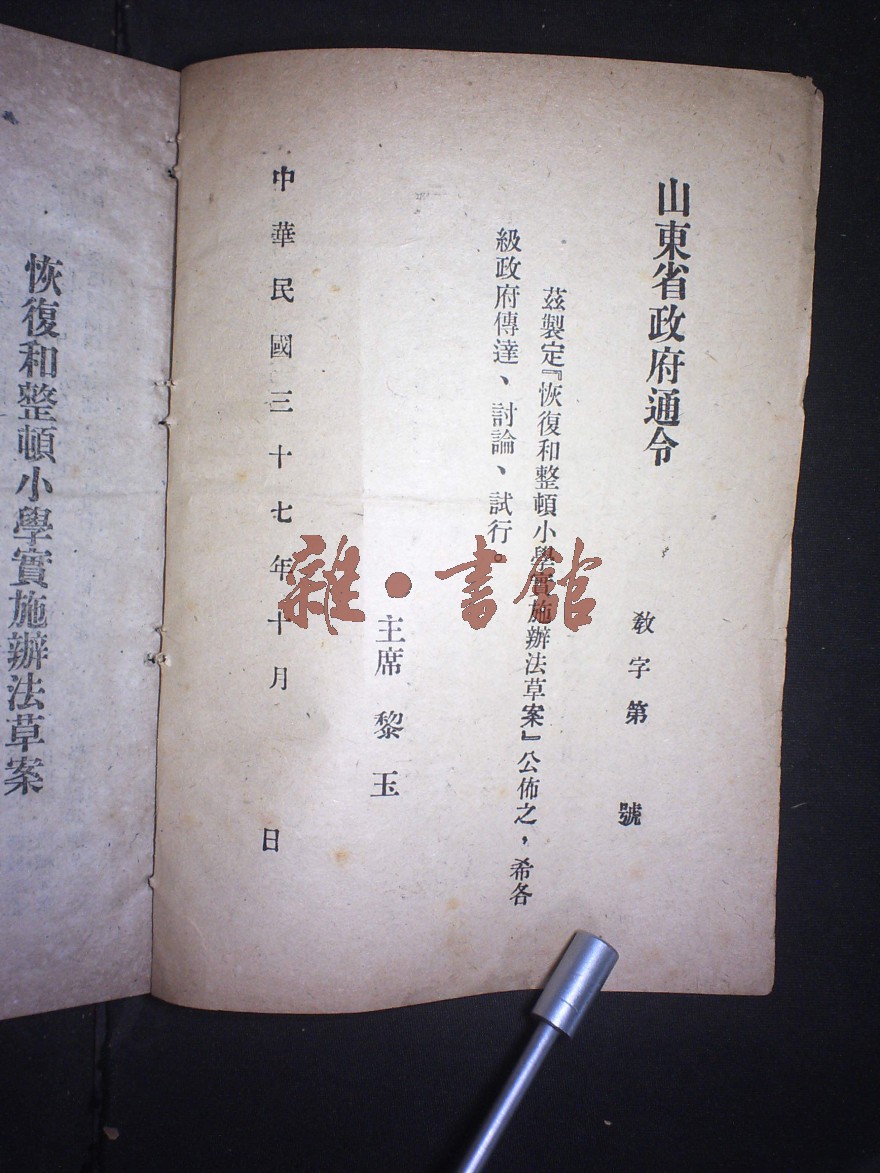 山東省政府通令
敎字第　　號
茲製定『恢復和整頓小學實施辦法草案』公佈之，希各
級政府傳達、討論、試行。
主席　黎　玉
中華民國三十七年十月　　日
恢復和整頓小學實施辦法草案
雜·書館